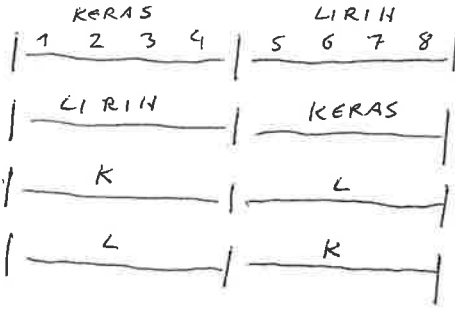 KERAS LIRIH
1 2 3 4 5 6 7 8
LIRIH KERAS
K L
L K